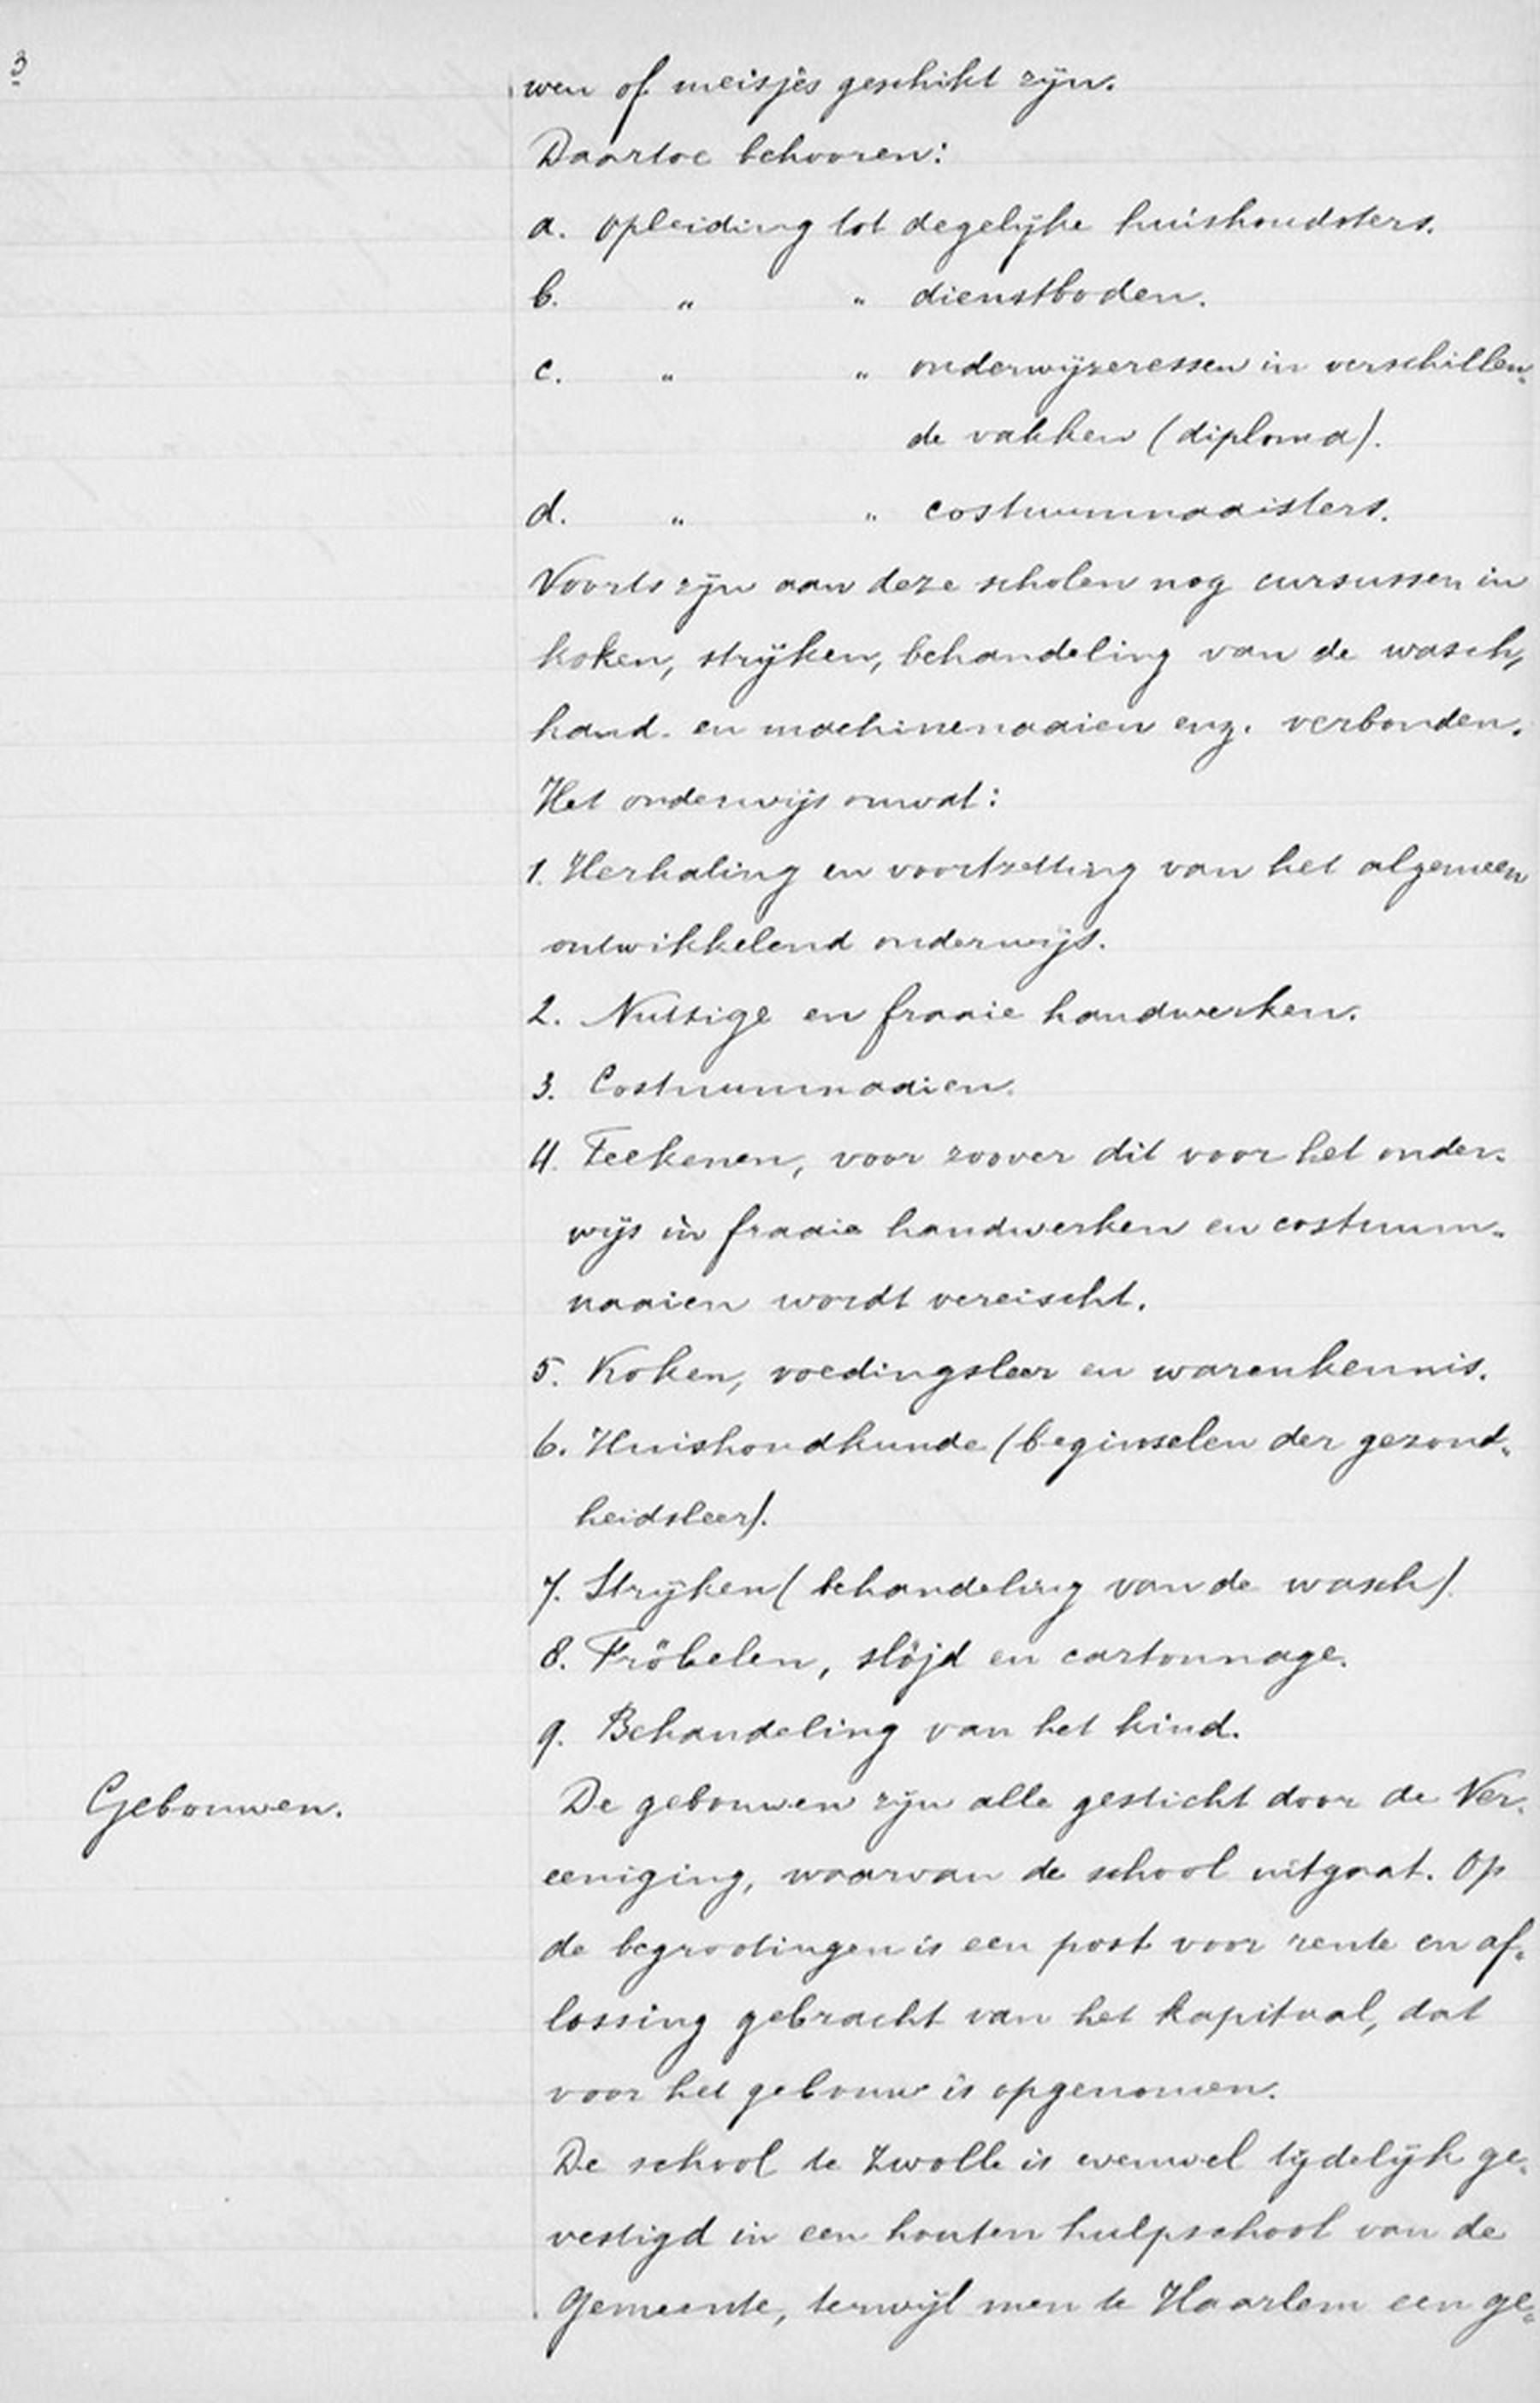 3
wen of meisjes geschikt zijn.
Daartoe behooren:
a. Opleiding tot degelijke huishoudsters.
b. " " dienstboden.
c. " " onderwijzeressen in verschillen„
de vakken (diploma).
d. " " costuumnaaisters.
Voorts zijn aan deze scholen nog cursussen in
koken, strijken, behandeling van de wasch,
hand- en machinenaaien enz. verbonden.
Het onderwijs omvat:
1. Herhaling en voortzetting van het algemeen
ontwikkelend onderwijs.
2. Nuttige en fraaie handwerken.
3. Costuumnaaien.
4. Teekenen, voor zoover dit voor het onder„
wijs in fraaie handwerken en costuum„
naaien wordt vereischt.
5. Koken, voedingsleer en warenkennis.
6. Huishoudkunde (beginselen der gezond„
heidsleer).
7. Strijken (behandeling van de wasch).
8. Fröbelen, slöjd en cartonnage.
9. Behandeling van het kind.
Gebouwen.
De gebouwen zijn alle gesticht door de Ver„
eeniging, waarvan de school uitgaat. Op
de begrootingen is een post voor rente en af„
lossing gebracht van het kapitaal, dat
voor het gebouw is opgenomen.
De school te Zwolle is evenwel tijdelijk ge„
vestigd in een houten hulpschool van de
Gemeente, terwijl men te Haarlem een ge„